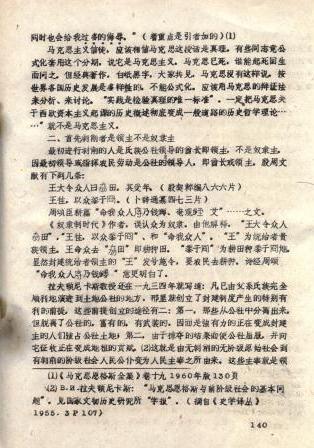 同时也会给我过多的侮辱。”（着重点是引者加的）(1)
马克思主义信徒，应该相信马克思这段话是真理。有些同志竟公
式化套用这个分期，说它是马克思主义。马克思已死，谁能起死回生
面问之。但经典著作，白纸黑字，大家共见。马克思没有这样说，按
世界各国历史发展是多样性的。不能公式化，应该用马克思的辩证法
来分析、来讨论。“实践是检验真理的唯一标准”。一定把马克思关
于西欧资本主义起源的历史概述彻底变成一般道路的历史哲学理论…
…”就不是马克思主义。
二、首先剥削者是领主不是奴隶主
最初进行剥削的人是氏族公社领导的酋长即领主，不是奴隶主。
因最初领导或指挥农民劳动是公社的领导人，即酋长或领主。殷周文
献有下列几条：
王大令众人曰田。其受年。（殷契粹编八六六片）
王往，以众于。（卜辞通纂四七三片）
周颂臣新篇“命我众人庤乃钱镈、奄观铚艾”……之文。
《奴隶制时代》作者，误认为奴隶。由他解释，“王大令众人
田”，“王往，以众于”，和“命我众人”。“王”为统治者贵
族领主。王命众去“田”即耕种田。“于”为耕田种于地。
显然封建统治者领主的“王”发号施令，要农民去耕种。诗经周颂
“命我众人庤乃钱镈”您更明白了。
拉夫顿尼卡斯教授还在一九三四年就写道：凡已由父系氏族完全
顺利地演进到土地公社的地方，那里就创立了封建制度产生的特别有
利的前提，这些前提创立的途径有二：第一，那些从公社中分离出来、
但脱离了公社的，富有的，有武装的，因而是强有力的正在变成封建
主的人们强占公社土地；第二，由于掠夺的结果而使公社屈服，并向
它征收正在变成地租的贡献。(2)这就是由无剥削的无阶级原始社会到
有剥削的阶级社会人民公仆变为人民主宰之所由来。这些主宰是领
(1)《马克思恩格斯全集》卷十九1960年版130页
(2)B.И.拉夫顿尼卡斯：“马克思恩格斯与前阶级社会的基本问
题”，见国家文物历史研究所“学报”。（摘自《史学译丛》
1955.3 P107）
140